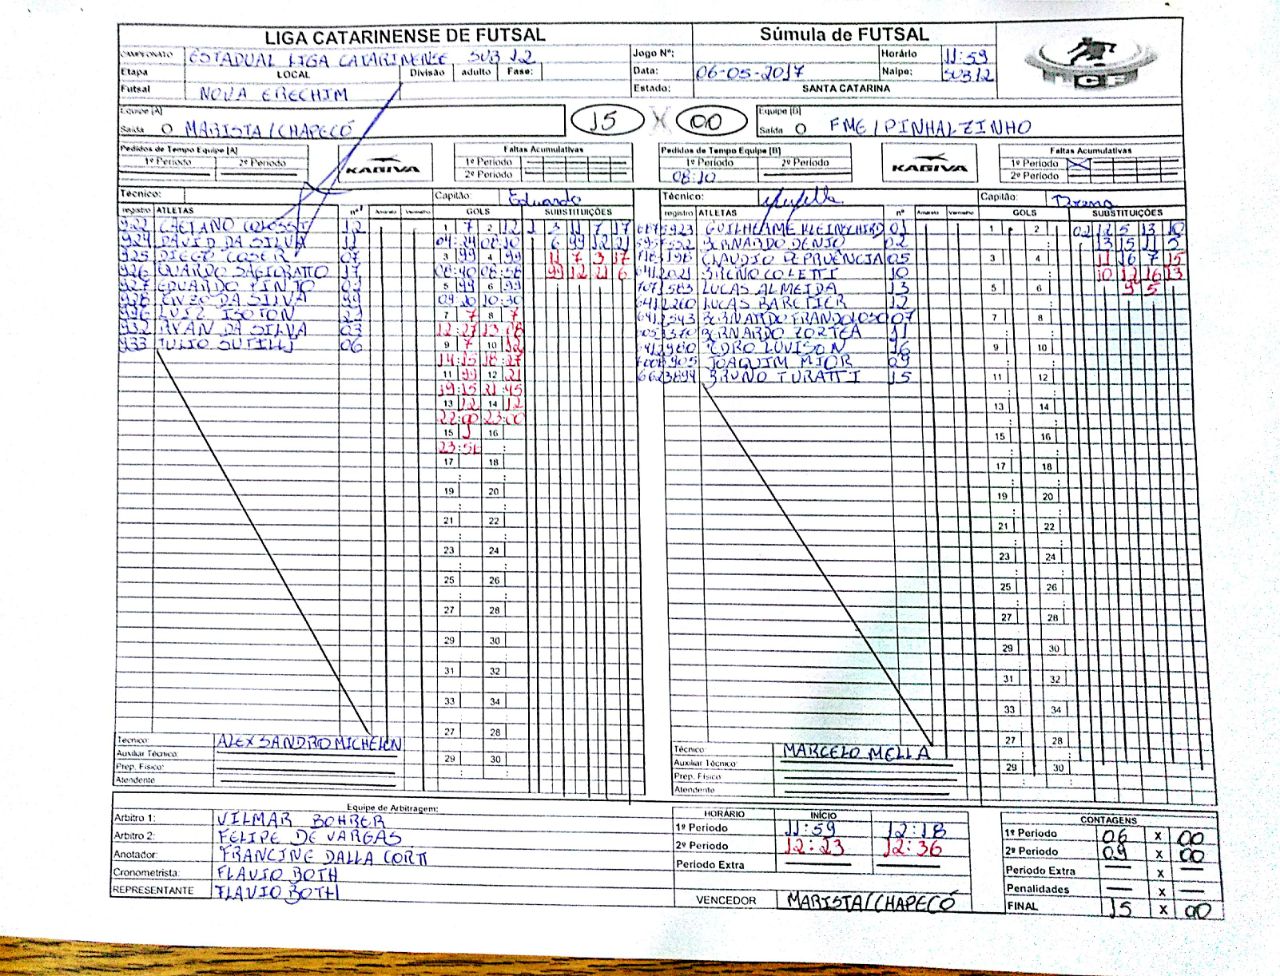 LIGA CATARINENSE DE FUTSAL
Súmula de FUTSAL
CAMPEONATO ESTADUAL LIGA CATARINENSE SUB 12
Etapa LOCAL Divisão adulto Fase:
Futsal NOVA ERECHIM
Jogo Nº: Horário 11:59
Data: 06-05-2017 Naipe: SUB 12
Estado: SANTA CATARINA
LCF
Equipe [A]
Saída O MARISTA/CHAPECÓ
15 X 00
Equipe [B]
Saída O FME/PINHALZINHO
Pedidos de Tempo Equipe [A]
1º Período 2º Período
KAGIVA
Faltas Acumulativas
1º Período
2º Período
Pedidos de Tempo Equipe [B]
1º Período 2º Período
08:10
KAGIVA
Faltas Acumulativas
1º Período
2º Período
Técnico: Capitão: Eduardo
registro ATLETAS nº Amarelo Vermelho GOLS SUBSTITUIÇÕES
922 CAETANO COLOSSI 12
924 DAVID DA SILVA 11
925 DIEGO COSER
926 17
927 EDUARDO PINTO 07
928 ENZO DA SILVA 99
LUIZ ISOTON 21
932 RYAN DA SILVA 03
933 JULIO SUTILLI 06
1 7 2 12
04:24 08:10
3 99 4 99
08:40 08:56
5 99 6 99
09:20 10:30
7 7 8 7
12:27 13:08
9 7 10 12
14:15 18:27
11 99 12 21
19:15 21:45
13 12 14 12
22:00 23:00
15 16
23:56
17 18
19 20
21 22
23 24
25 26
27 28
29 30
31 32
33 34
27 28
29 30
1 3 11 7 17
6 99 12 21
11 7 3 17
99 12 21 6
Técnico: ALEXSANDRO MICHELON
Auxiliar Técnico:
Prep. Físico:
Atendente
Técnico: Capitão: Breno
registro ATLETAS nº Amarelo Vermelho GOLS SUBSTITUIÇÕES
GUILHERME KLEINSCHMID 01
BERNARDO DENJO 02
CLAUDIO DEPRUÊNCIA 05
BRENO COLETTI 10
LUCAS ALMEIDA 13
LUCAS BARETIER 12
BERNARDO FRANDOLOSO 07
BERNARDO ZORTEA 11
PEDRO LUVISON 16
JOAQUIM MIOR 09
6623894 BRUNO TURATTI 15
1 2
3 4
5 6
7 8
9 10
11 12
13 14
15 16
17 18
19 20
21 22
23 24
25 26
27 28
29 30
31 32
33 34
27 28
29 30
02 12 5 13 10
13 15 11 5
11 16 7 15
10 12 16 13
9 5
Técnico: MARCELO MELLA
Auxiliar Técnico:
Prep. Físico
Atendente
Equipe de Arbitragem:
Arbitro 1: VILMAR BOHRER
Arbitro 2: FELIPE DE VARGAS
Anotador: FRANCINE DALLA CORT
Cronometrista: FLAVIO BOTH
REPRESENTANTE FLAVIO BOTH
HORÁRIO INÍCIO
1º Período 11:59 12:18
2º Período 12:23 12:36
Período Extra
VENCEDOR MARISTA/CHAPECÓ
CONTAGENS
1º Período 06 X 00
2º Período 09 X 00
Período Extra X
Penalidades X
FINAL 15 X 00